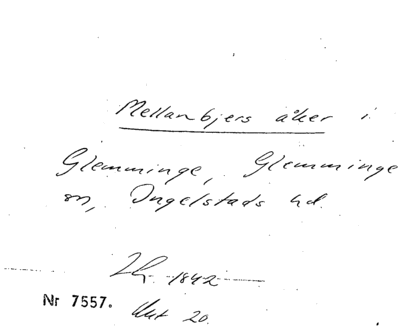 Mellanbjers åker i
Glemminge, Glemminge
sn, Ingelstads hd.
1842
Nr 7557.
Akt 20.